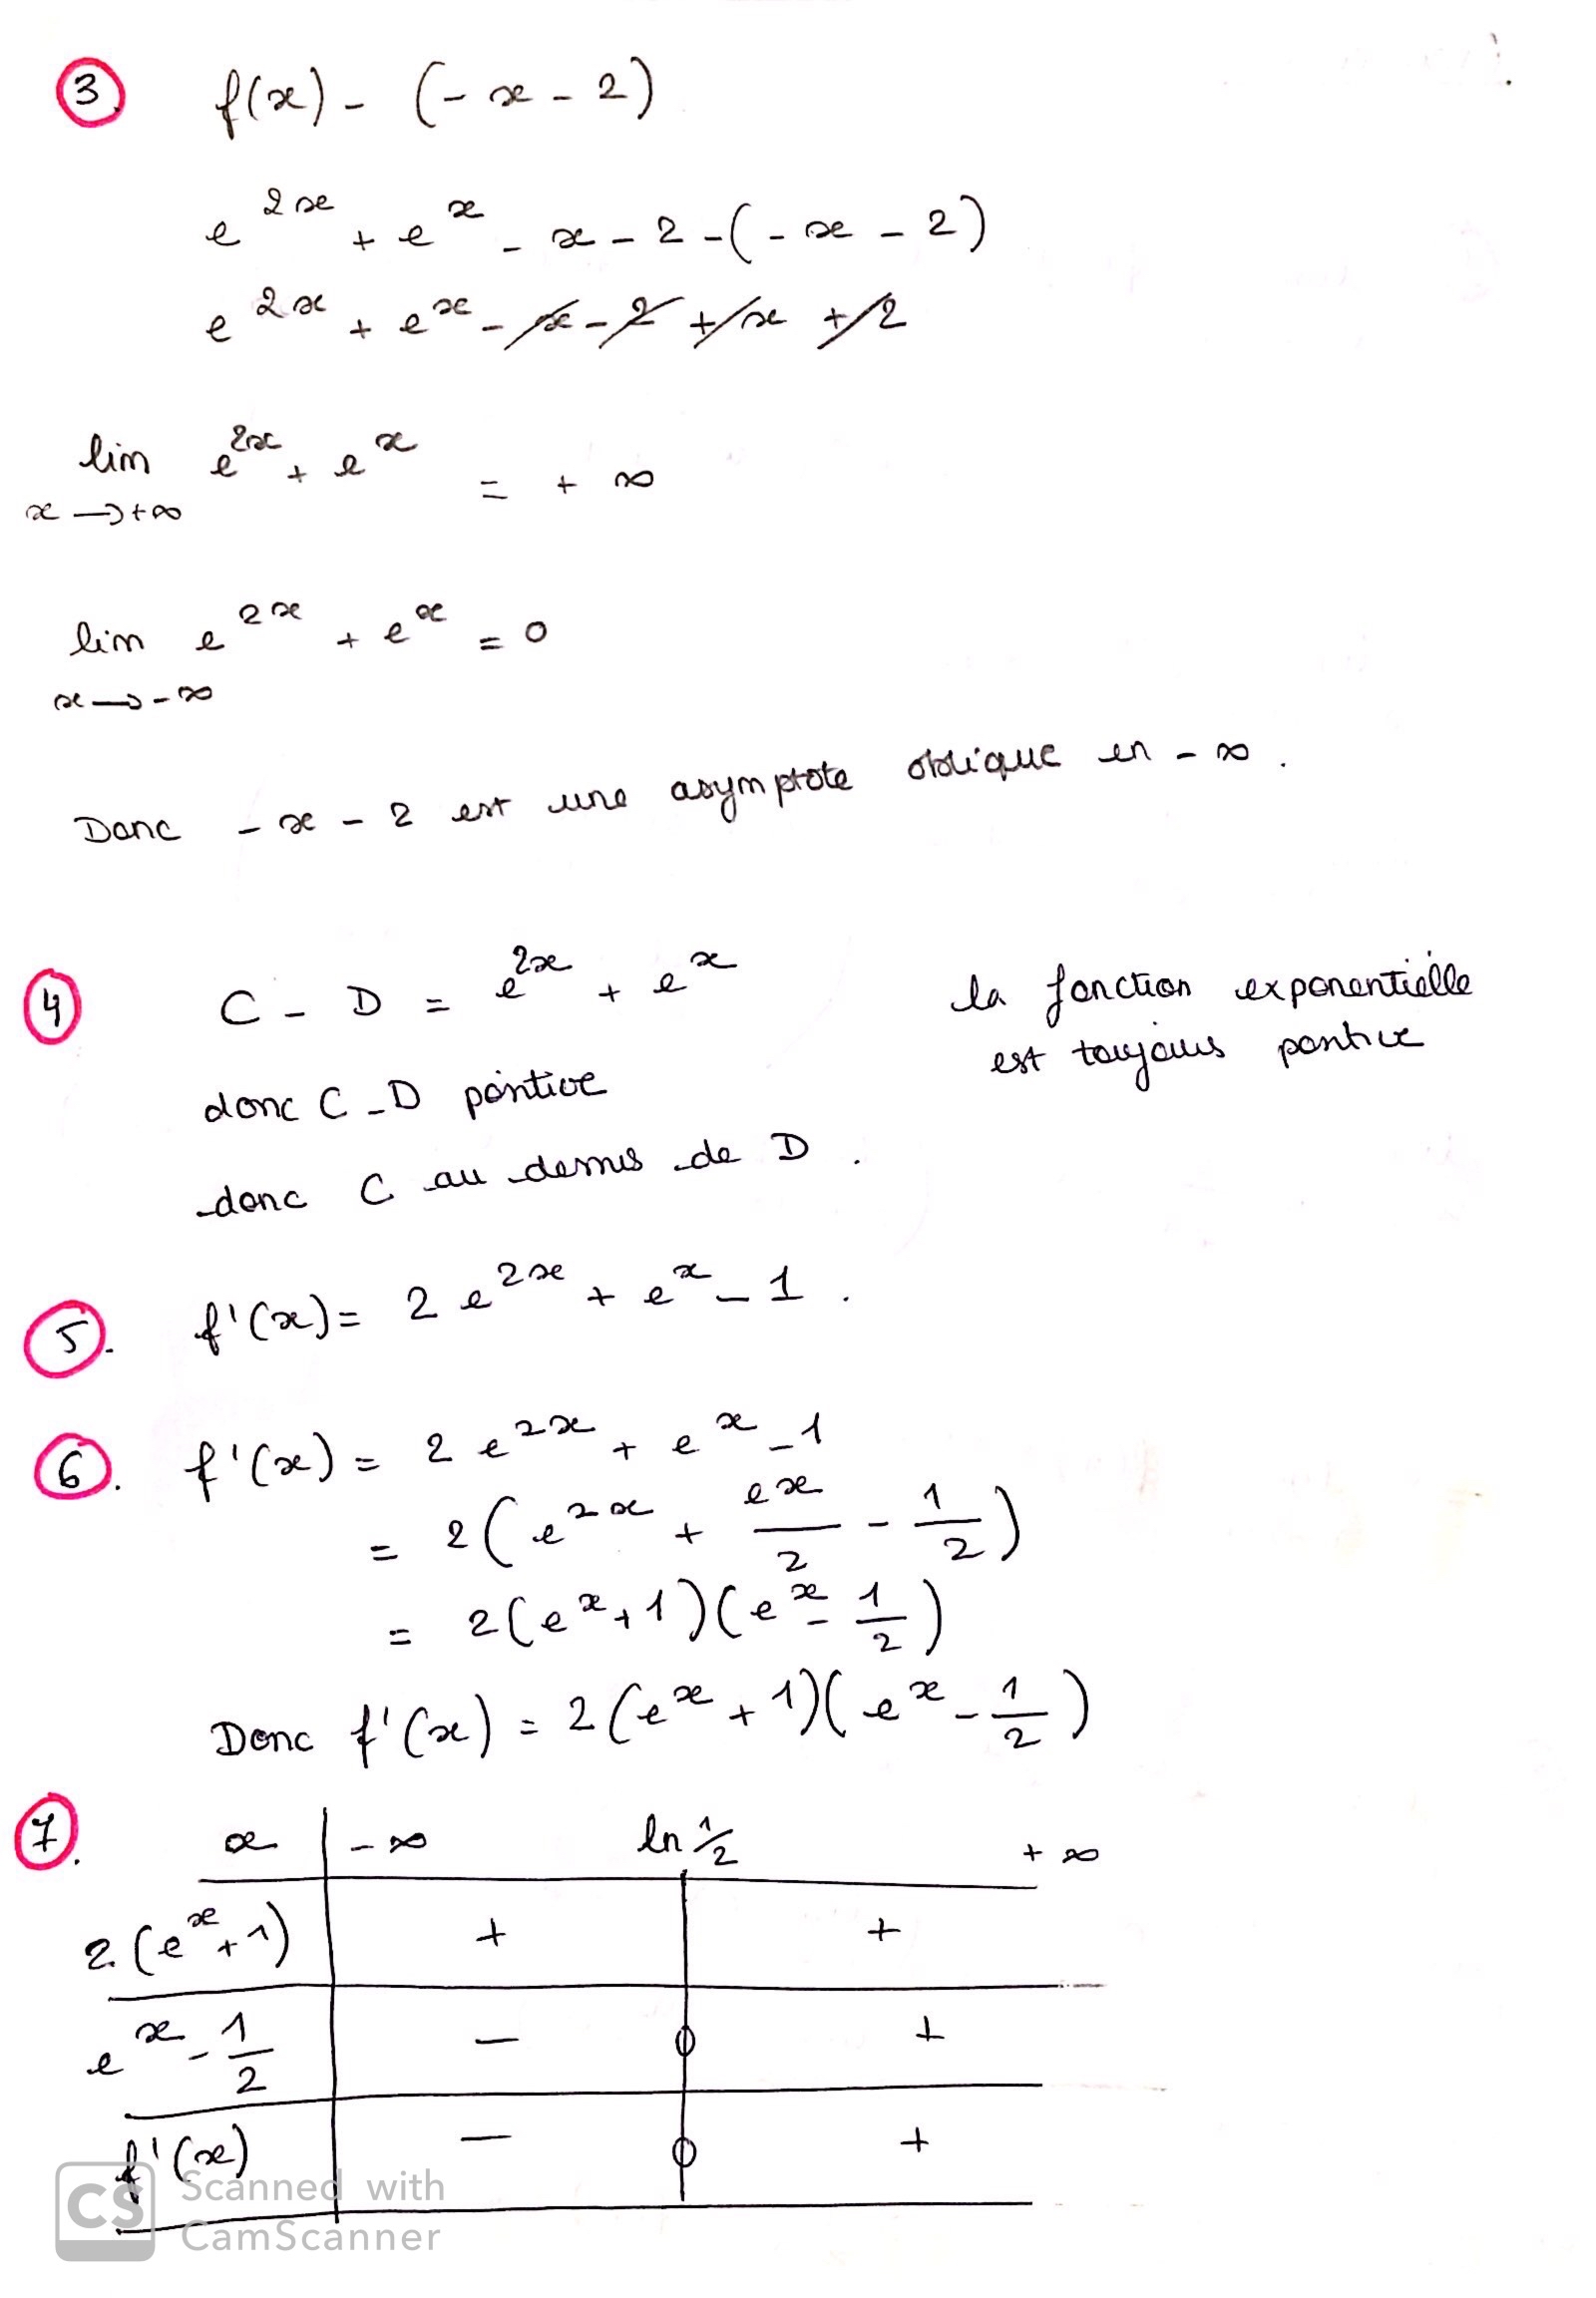 3 f(x) - (-x - 2)
e^{2x} + e^x - x - 2 - (-x - 2)
e^{2x} + e^x - x - 2 + x + 2
lim e^{2x} + e^x = + ∞
x → +∞
lim e^{2x} + e^x = 0
x → -∞
Donc - x - 2 est une asymptote oblique en - ∞ .
4 C - D = e^{2x} + e^x la fonction exponentielle
est toujours positive
donc C - D positive
donc C au dessus de D .
5. f'(x) = 2 e^{2x} + e^x - 1 .
6. f'(x) = 2 e^{2x} + e^x - 1
= 2 (e^{2x} + e^x/2 - 1/2)
= 2(e^x + 1)(e^x - 1/2)
Donc f'(x) = 2 (e^x + 1)(e^x - 1/2)
7. x - ∞ ln 1/2 + ∞
2(e^x + 1) + +
e^x - 1/2 - 0 +
f'(x) - 0 +
CS Scanned with
CamScanner